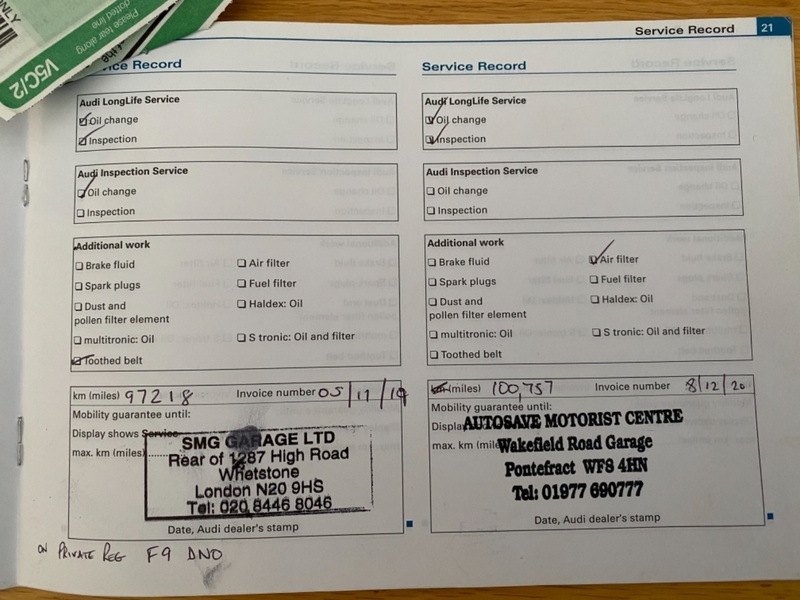 ONLY
Please tear along
dotted line
V5C/2
Service Record 21
ice Record
Audi LongLife Service
Oil change
Inspection
Audi Inspection Service
Oil change
Inspection
Additional work
Brake fluid
Air filter
Spark plugs
Fuel filter
Dust and
pollen filter element
Haldex: Oil
multitronic: Oil
S tronic: Oil and filter
Toothed belt
km (miles) 97218 Invoice number 05/11/19
Mobility guarantee until:
Display shows Service
max. km (miles)
SMG GARAGE LTD
Rear of 1287 High Road
Whetstone
London N20 9HS
Tel: 020 8446 8046
Date, Audi dealer's stamp
ON PRIVATE REG F9 DNO
Service Record
Audi LongLife Service
Oil change
Inspection
Audi Inspection Service
Oil change
Inspection
Additional work
Brake fluid
Air filter
Spark plugs
Fuel filter
Dust and
pollen filter element
Haldex: Oil
multitronic: Oil
S tronic: Oil and filter
Toothed belt
km (miles) 100,757 Invoice number 8/12/20
Mobility guarantee until:
Displa
max. km (mile
AUTOSAVE MOTORIST CENTRE
Wakefield Road Garage
Pontefract WF8 4HN
Tel: 01977 690777
Date, Audi dealer's stamp